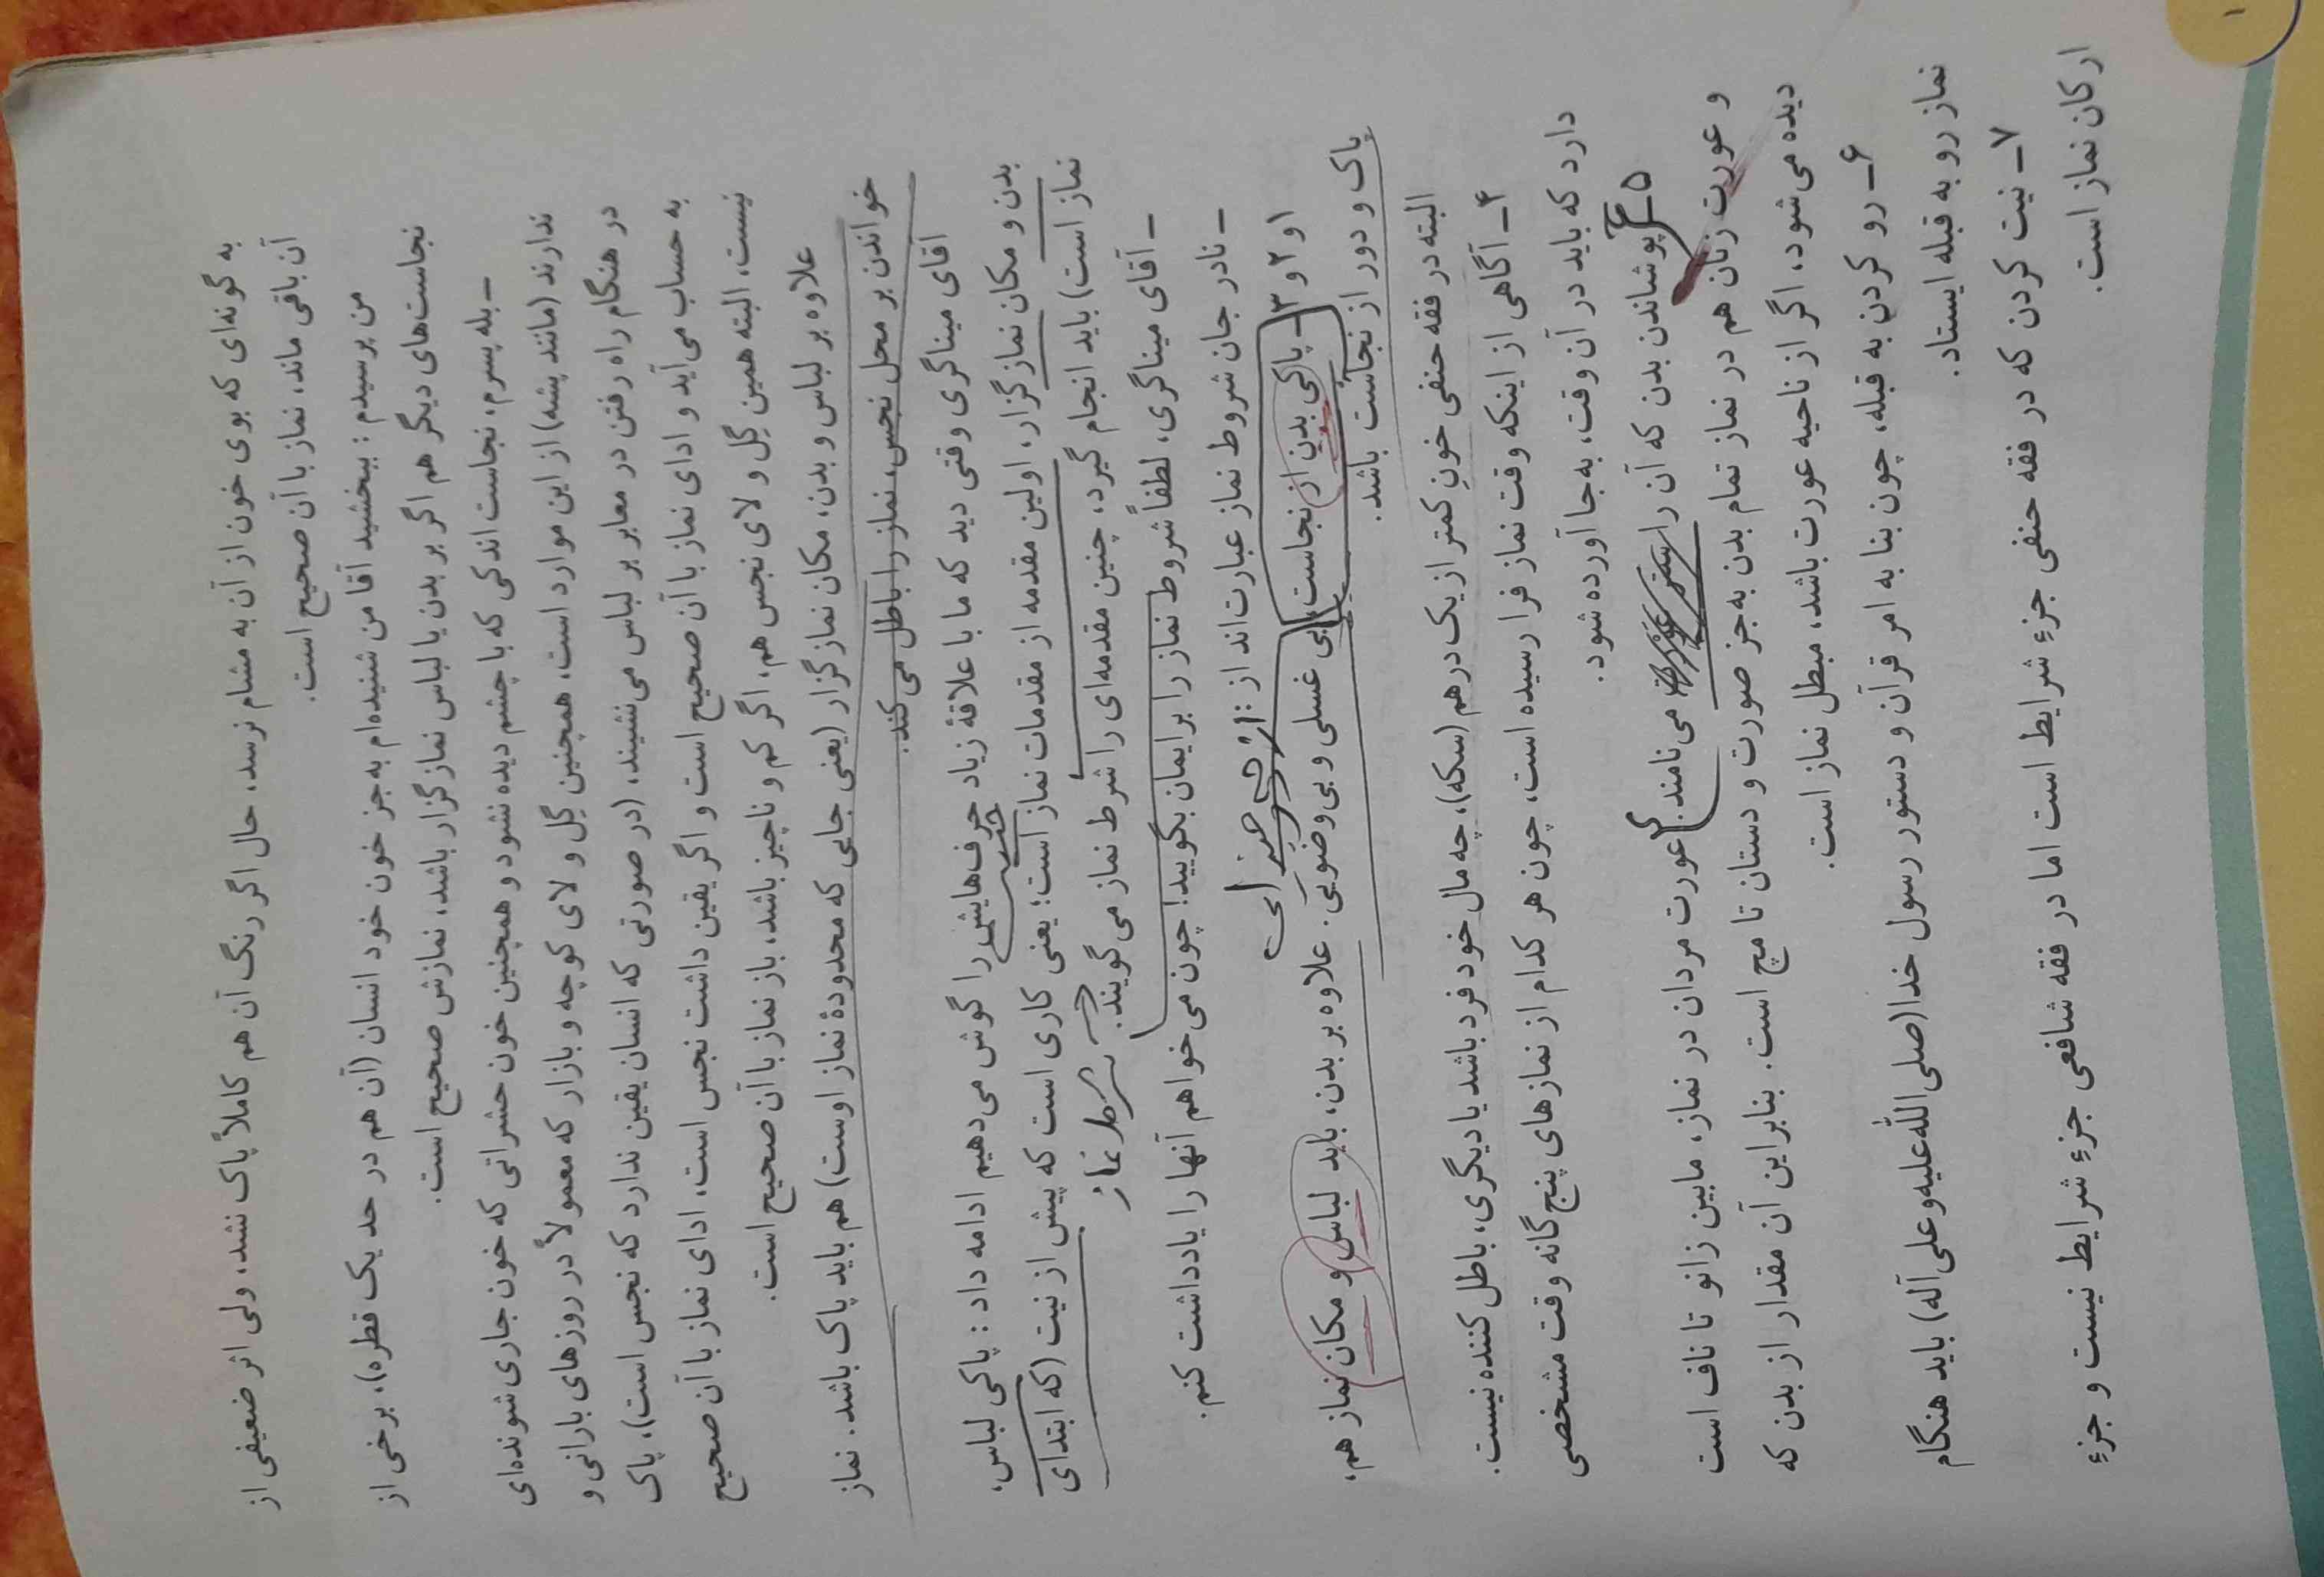 به گونه‌ای که بوی خون از آن به مشام نرسد، حال اگر رنگ آن هم کاملاً پاک نشد، ولی اثر ضعیفی از
آن باقی ماند، نماز با آن صحیح است.
من پرسیدم : ببخشید آقا من شنیده‌ام به جز خون خود انسان (آن هم در حد یک قطره)، برخی از
نجاست‌های دیگر هم اگر بر بدن یا لباس نمازگزار باشد، نمازش صحیح است.
ـ بله پسرم، نجاست اندکی که با چشم دیده نشود و همچنین خون حشراتی که خون جاری شونده‌ای
ندارند (مانند پشه) از این موارد است، همچنین گِل و لای کوچه و بازار که معمولاً در روزهای بارانی و
در هنگام راه رفتن در معابر بر لباس می‌نشیند، (در صورتی که انسان یقین ندارد که نجس است)، پاک
به حساب می‌آید و ادای نماز با آن صحیح است و اگر یقین داشت نجس است، ادای نماز با آن صحیح
نیست، البته همین گِل و لای نجس هم، اگر کم و ناچیز باشد، باز نماز با آن صحیح است.
علاوه بر لباس و بدن، مکان نمازگزار (یعنی جایی که محدودهٔ نماز اوست) هم باید پاک باشد. نماز
خواندن بر محل نجس، نماز را باطل می‌کند.
آقای میناگری وقتی دید که ما با علاقهٔ زیاد حرف‌هایش را گوش می‌دهیم ادامه داد : پاکی لباس،
بدن و مکان نمازگزار، اولین مقدمه از مقدمات نماز است؛ یعنی کاری است که پیش از نیت (که ابتدای
نماز است) باید انجام گیرد، چنین مقدمه‌ای را شرط نماز می‌گویند. شرط نماز
ـ آقای میناگری، لطفاً شروط نماز را برایمان بگویید! چون می‌خواهم آنها را یادداشت کنم.
ـ نادر جان شروط نماز عبارت‌اند از :
۱ و ۲ و ۳ـ پاکی بدن از نجاست، بی غسلی و بی‌وضویی. علاوه بر بدن، باید لباس و مکان نماز هم،
پاک و دور از نجاست باشد.
البته در فقه حنفی خونِ کمتر از یک درهم (سکه)، چه مال خود فرد باشد یا دیگری، باطل کننده نیست.
۴ـ آگاهی از اینکه وقت نماز فرا رسیده است، چون هر کدام از نمازهای پنج گانه وقت مشخصی
دارد که باید در آن وقت، به‌جا آورده شود.
۵ـ پوشاندن بدن که آن را ستر عورت می‌نامند. عورت مردان در نماز، مابین زانو تا ناف است
و عورت زنان هم در نماز تمام بدن به‌جز صورت و دستان تا مچ است. بنابراین آن مقدار از بدن که
دیده می‌شود، اگر از ناحیه عورت باشد، مبطل نماز است.
۶ـ رو کردن به قبله، چون بنا به امر قرآن و دستور رسول خدا (صلی‌الله‌علیه‌وعلی‌آله) باید هنگام
نماز رو به قبله ایستاد.
۷ـ نیت کردن که در فقه حنفی جزءِ شرایط است اما در فقه شافعی جزءِ شرایط نیست و جزءِ
ارکان نماز است.
۱